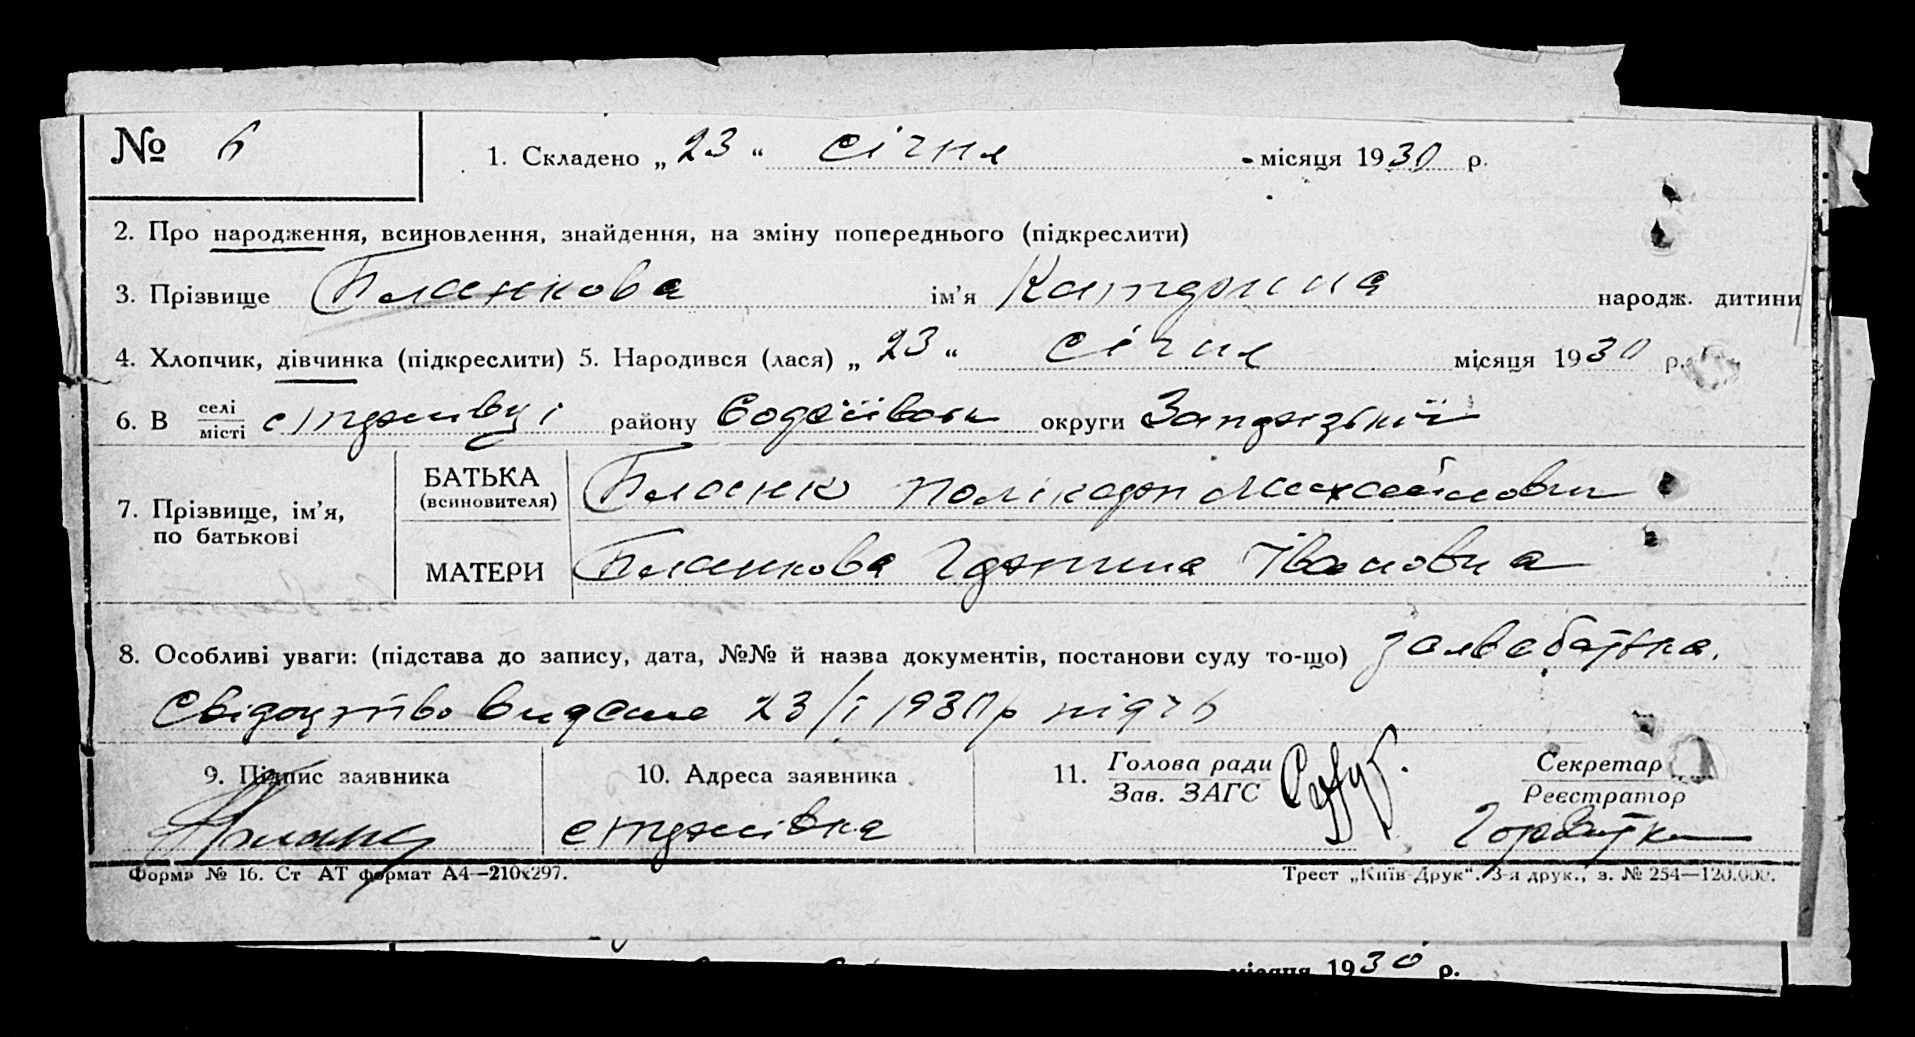 № 6 1. Складено „ 23 “ січня місяця 1930 р.
2. Про народження, всиновлення, знайдення, на зміну попереднього (підкреслити)
3. Прізвище Бланкова ім'я Катерина народж. дитини
4. Хлопчик, дівчинка (підкреслити) 5. Народився (лася) „ 23 “ січня місяця 1930 р.
6. В селі місті району округи Запорізької
7. Прізвище, ім'я, по батькові
БАТЬКА (всиновителя) Бланк Полікарп Михайлович
МАТЕРИ Бланкова Івановна
8. Особливі уваги: (підстава до запису, дата, №№ й назва документів, постанови суду то-що) заява батька.
Свідоцтво видано 23/I 1930 р під ч 6
9. Підпис заявника 10. Адреса заявника 11. Голова ради Зав. ЗАГС Секретар Реєстратор
Форма № 16. Ст АТ формат А4—210х297. Трест „Київ-Друк“. 3-я друк., з. № 254—120.000.
місяця 1930 р.